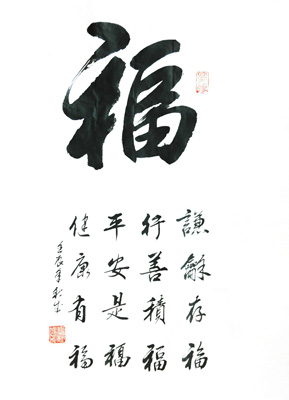 福
謙龢存福
行善積福
平安是福
健康有福
壬辰年秋生